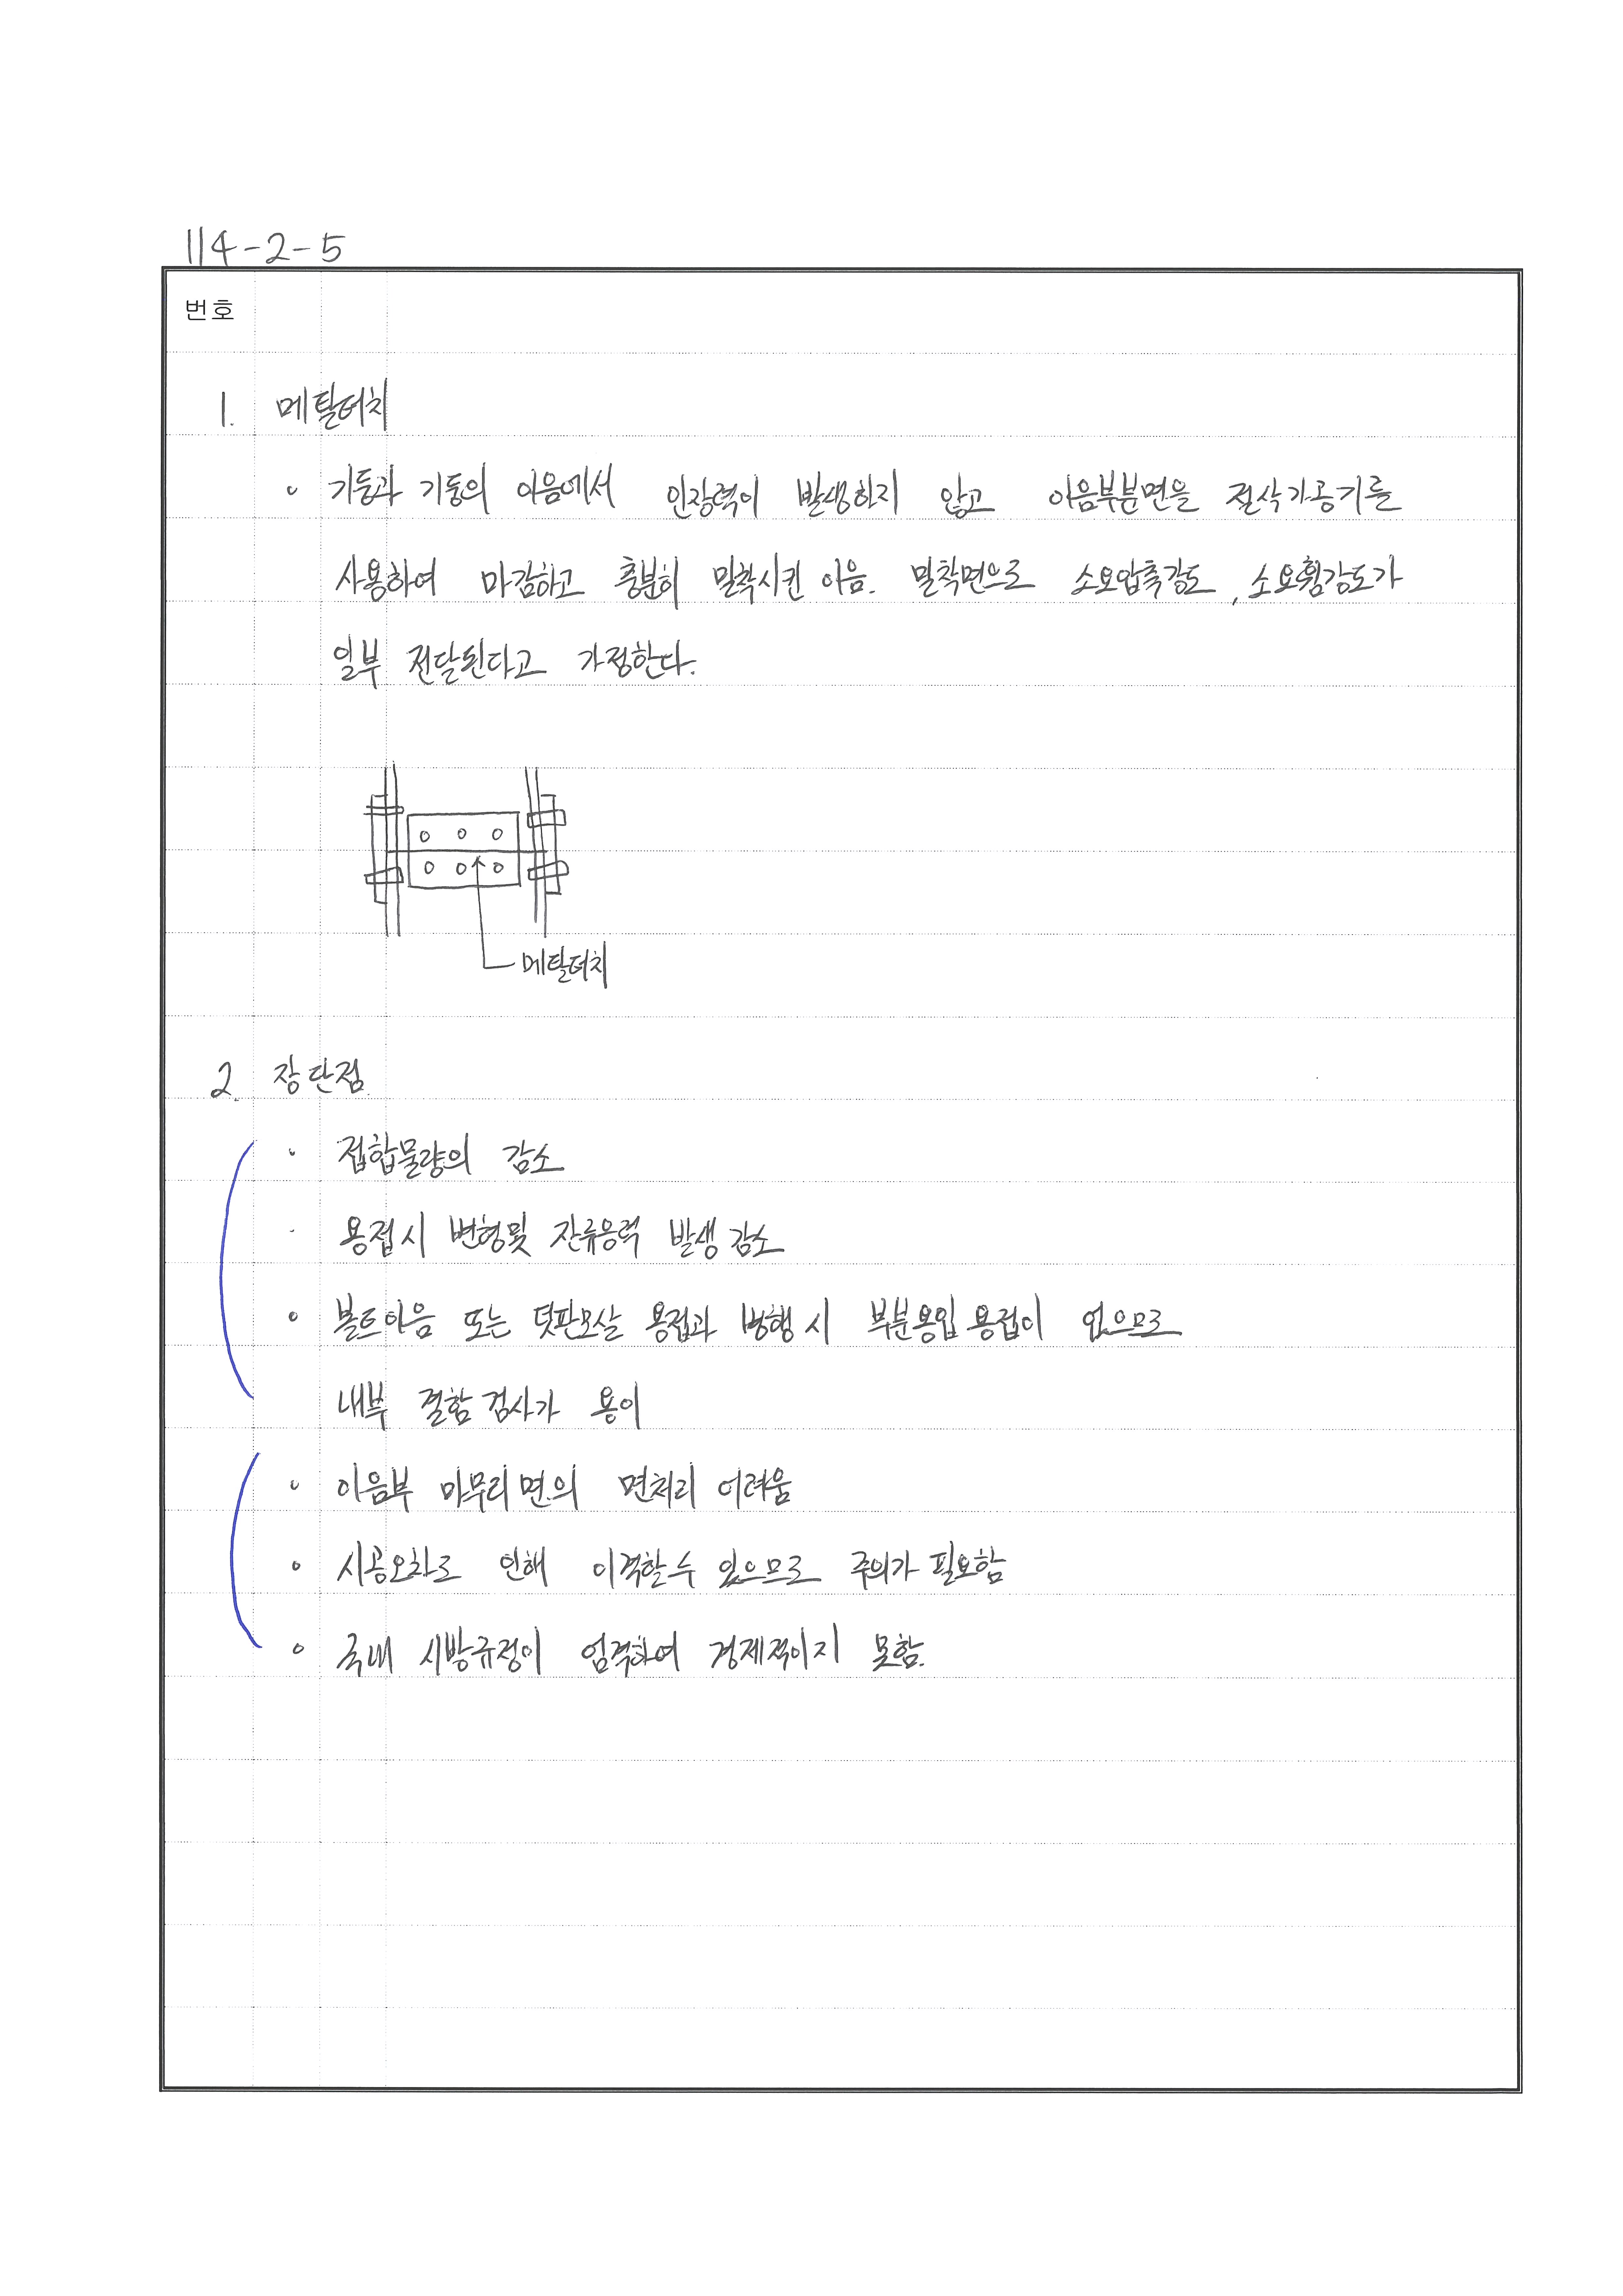 114-2-5
번호
1. 메탈터치
∘ 기둥과 기둥의 이음에서 인장력이 발생하지 않고 이음부분면을 절삭가공기를
사용하여 마감하고 충분히 밀착시킨 이음. 밀착면으로 소요압축강도, 소요휨강도가
일부 전달된다고 가정한다.
메탈터치
2. 장단점.
· 접합물량의 감소
- 용접시 변형및 잔류응력 발생 감소
∘ 볼트이음 또는 덧판모살 용접과 병행 시 부분용입 용접이 없으므로
내부 결함 검사가 용이
∘ 이음부 마무리면의 면처리 어려움
∘ 시공오차로 인해 이격할수 있으므로 주의가 필요함
∘ 국내 시방규정이 엄격하여 경제적이지 못함.